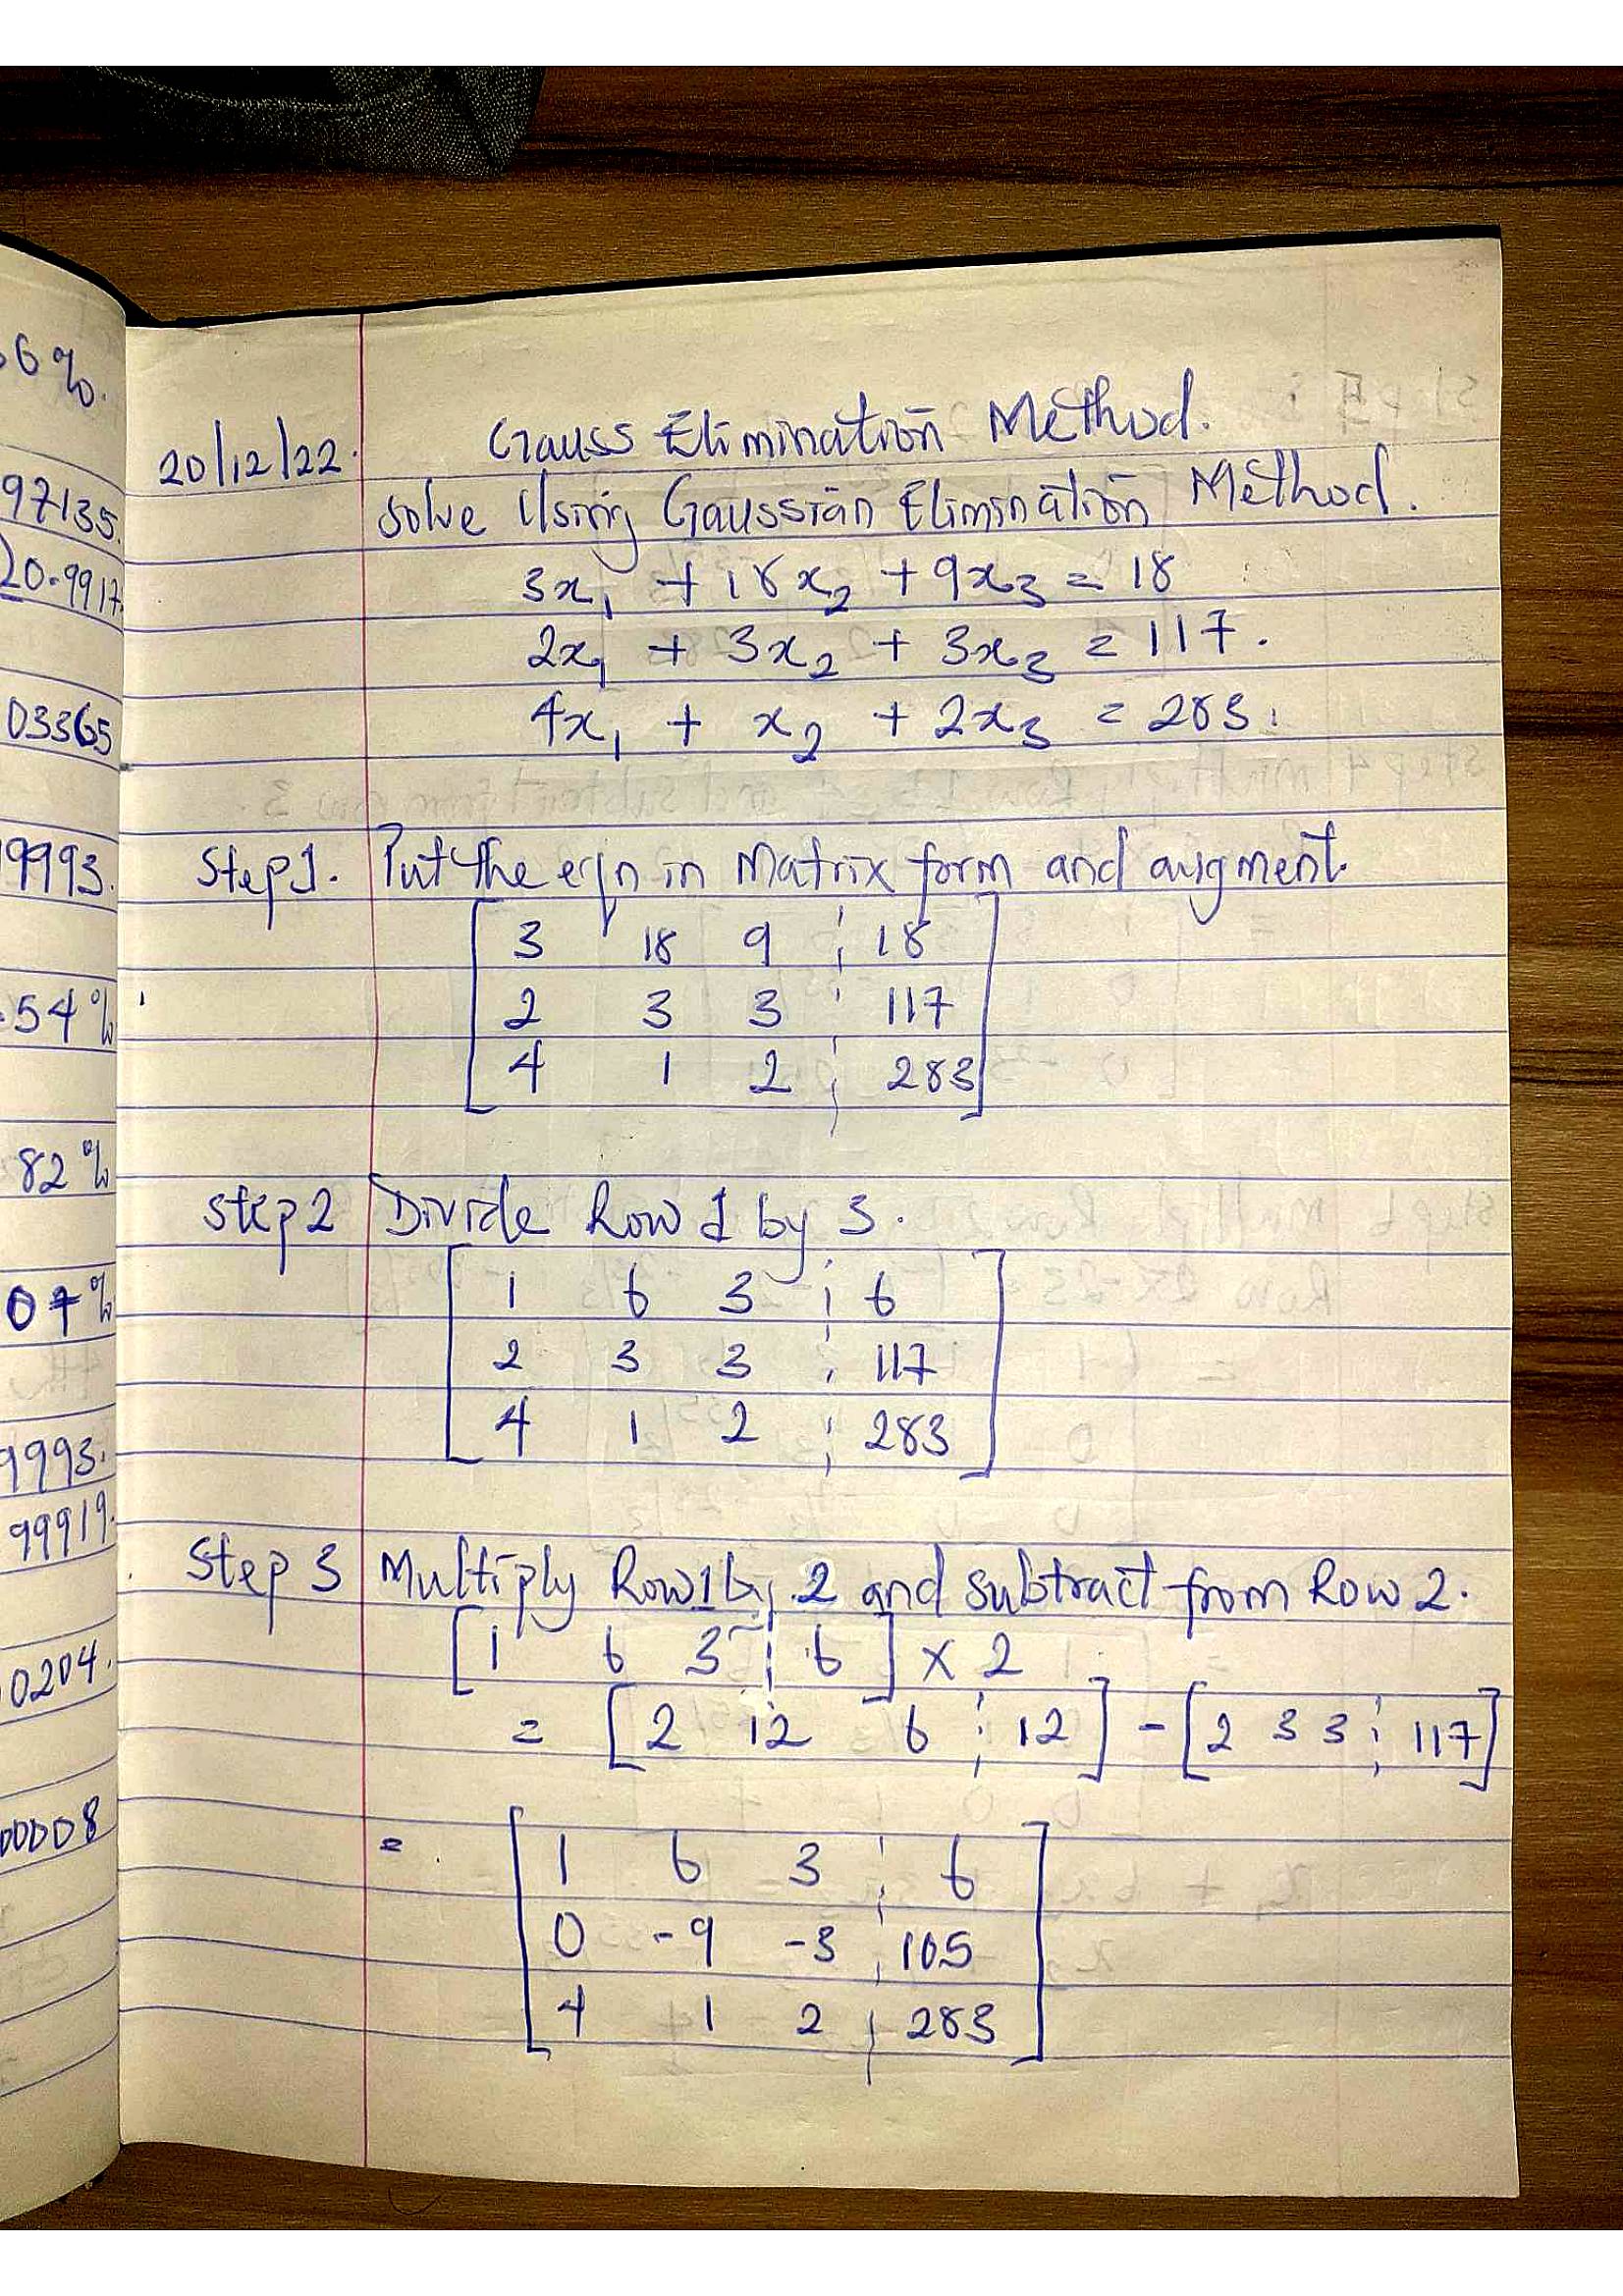 6%.
97135.
20.9917.
03365
9993.
.54%
82%
07%
9993.
99919.
0204.
00008
20/12/22.
Gauss Elimination Method.
Solve Using Gaussian Elimination Method.
3x₁ + 18x₂ + 9x₃ = 18
2x₁ + 3x₂ + 3x₃ = 117.
4x₁ + x₂ + 2x₃ = 283.
Step 1. Put the eqn in Matrix form and augment.
[ 3 18 9 ¦ 18
2 3 3 ¦ 117
4 1 2 ¦ 283 ]
Step 2 Divide Row 1 by 3.
[ 1 6 3 ¦ 6
2 3 3 ¦ 117
4 1 2 ¦ 283 ]
Step 3 Multiply Row 1 by 2 and subtract from Row 2.
[ 1 6 3 ¦ 6 ] × 2
= [ 2 12 6 ¦ 12 ] - [ 2 3 3 ¦ 117 ]
= [ 1 6 3 ¦ 6
0 -9 -3 ¦ 105
4 1 2 ¦ 283 ]